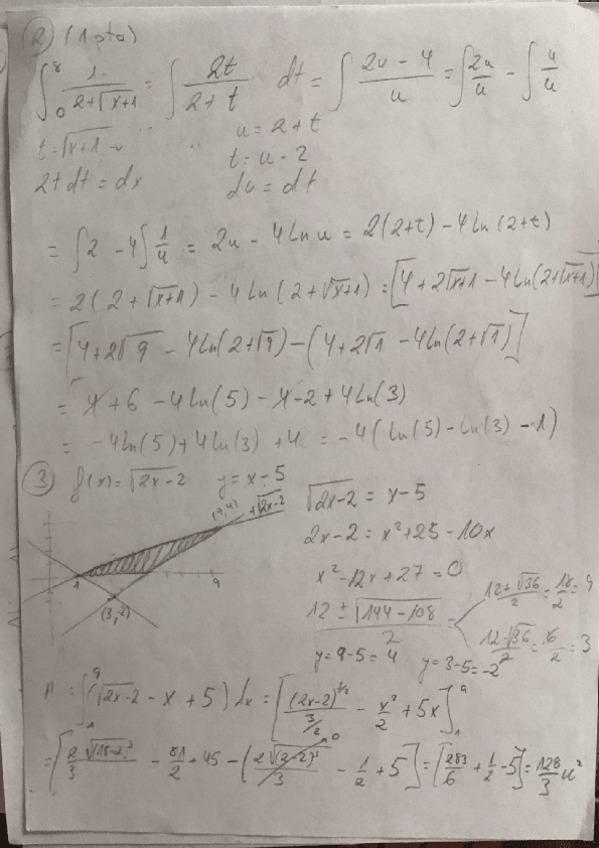 2) (1 pto)
∫₀⁸ 1/(2+√(x+1)) = ∫ 2t/(2+t) dt = ∫ (2u-4)/u = ∫ 2u/u - ∫ 4/u
t=√(x+1)
u = 2+t
t = u-2
2t dt = dx
du = dt
= ∫2 - 4∫ 1/u = 2u - 4 Ln u = 2(2+t) - 4 Ln(2+t)
= 2(2+√(x+1)) - 4 Ln(2+√(x+1)) = [4+2√(x+1) - 4Ln(2+√(x+1))]
= [4+2√9 - 4Ln(2+√9) - (4+2√1 - 4Ln(2+√1))]
= 4+6 - 4Ln(5) - 4-2 + 4Ln(3)
= -4Ln(5) + 4Ln(3) + 4 = -4(Ln(5) - Ln(3) - 1)
3) f(x)=√(2x-2) y = x-5
(9,4) +√(2x-2)
1 9
(3,-2)
√(2x-2) = x-5
2x-2 = x²+25-10x
x²-12x+27=0
(12 ± √(144-108))/2 =
(12+√36)/2 = 18/2 = 9
(12-√36)/2 = 6/2 = 3
y=9-5=4 y=3-5=-2
A = ∫₁⁹ (√(2x-2) - x + 5) dx = [(2x-2)^(3/2)/(3/2) - x²/2 + 5x]₁⁹
= [2√(18-2)³/3 - 81/2 + 45 - (2√(2-2)³/3 - 1/2 + 5)] = [283/6 + 1/2 - 5] = 128/3 u²